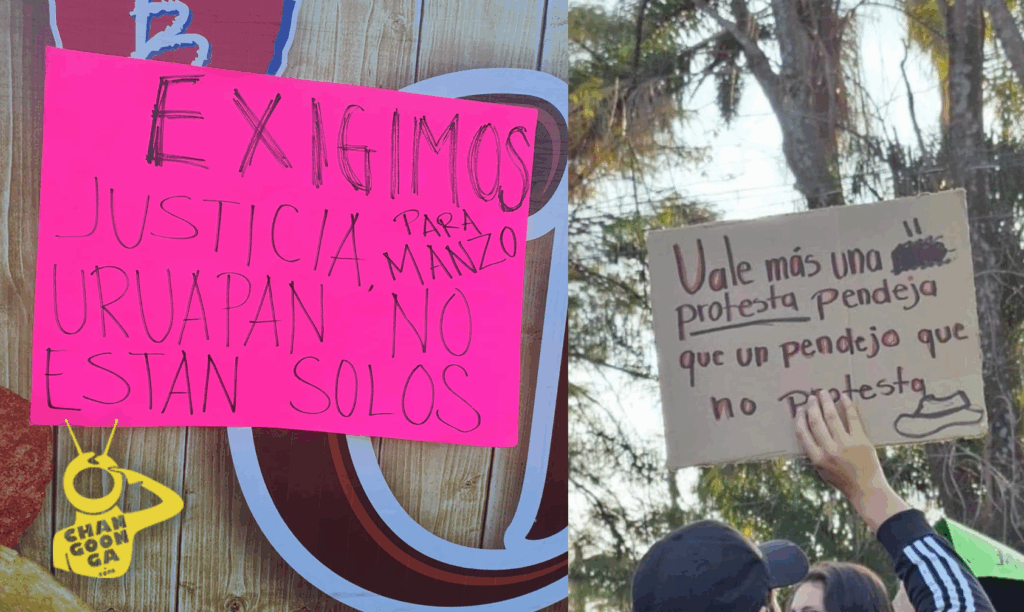 B
EXIGIMOS
JUSTICIA, PARA
MANZO
URUAPAN NO
ESTAN SOLOS
CHAN
GOON
GA
.com
Vale más una
protesta pendeja
que un pendejo que
no protesta